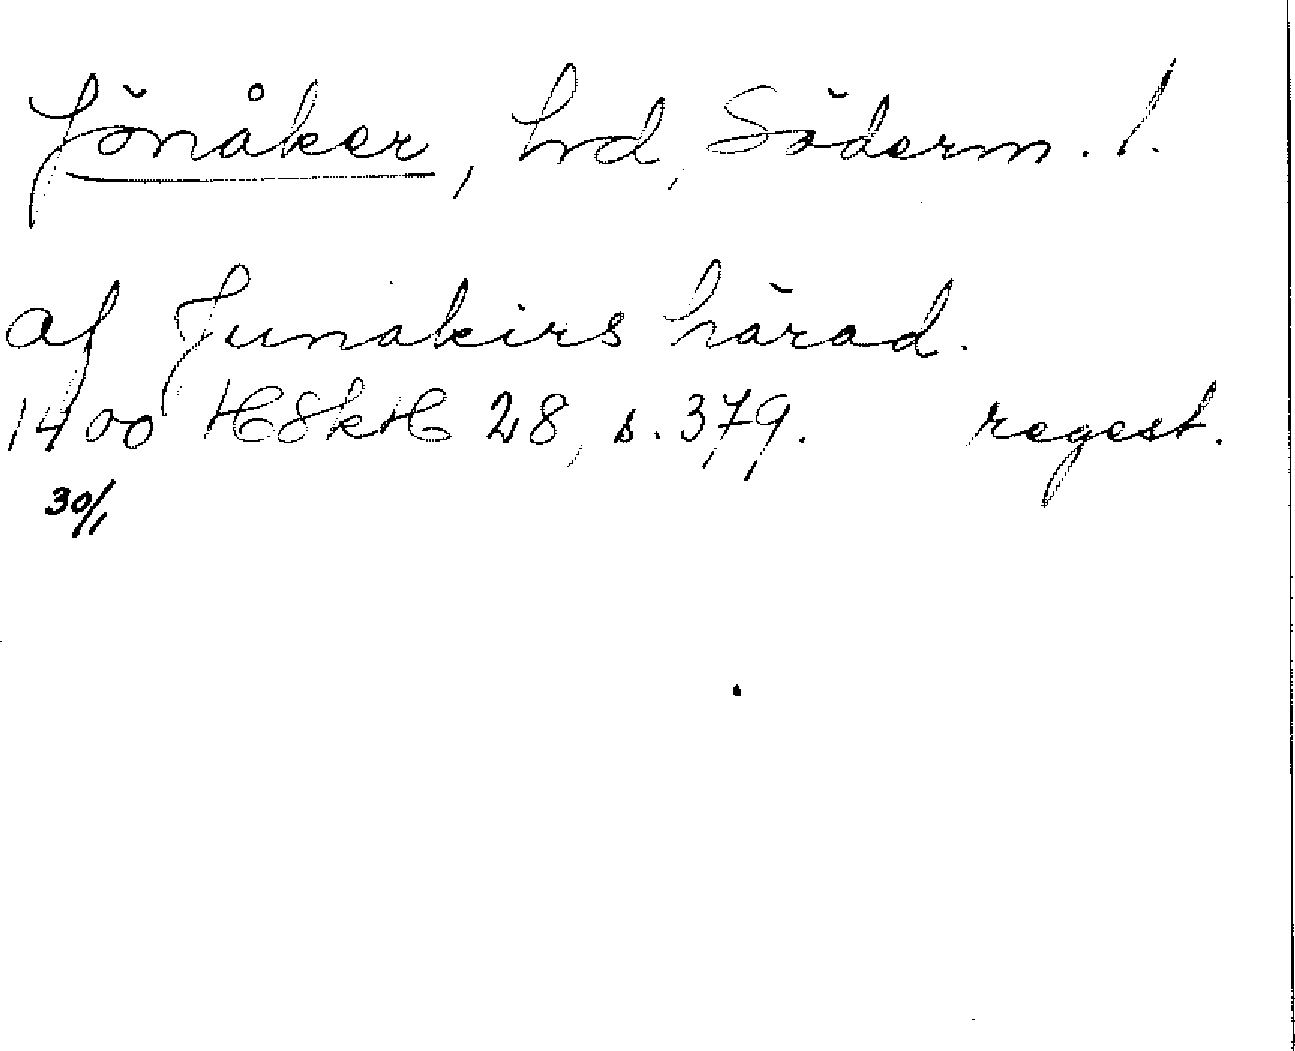 Jönåker, hd, Söderm. l.
af Junakirs härad.
1400 HSkH 28, s. 379. regest.
30/1